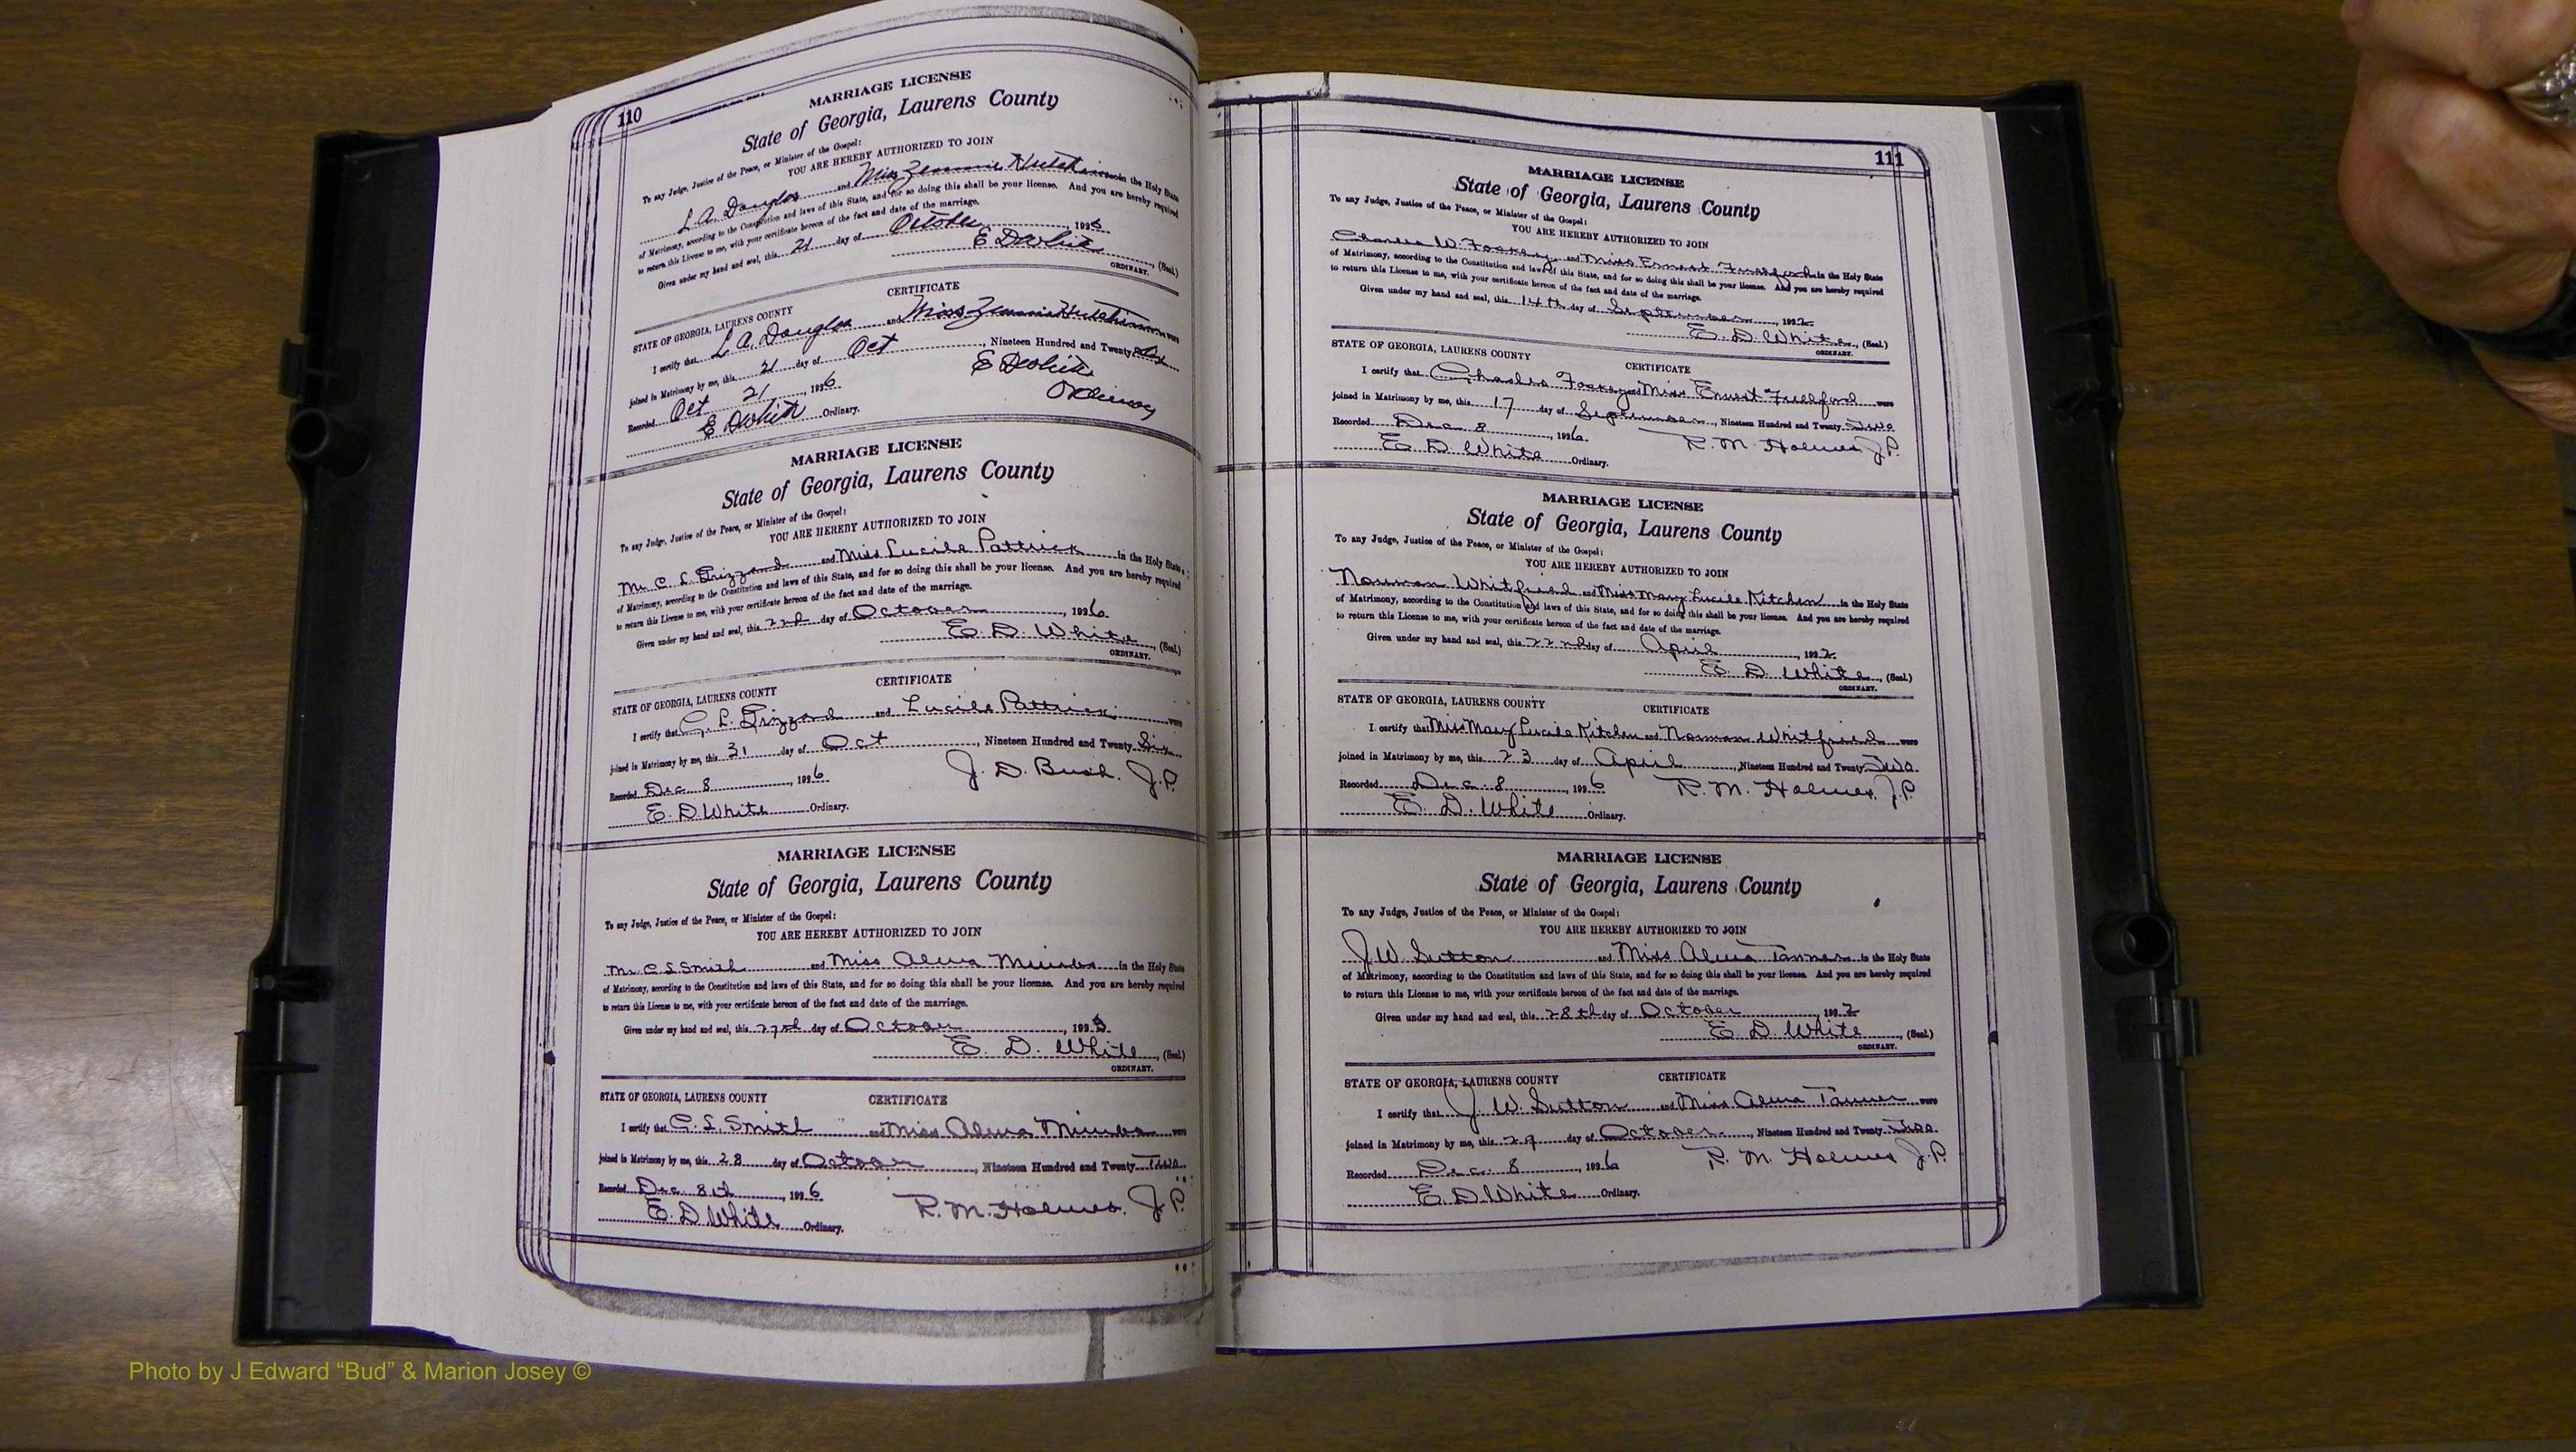 110
MARRIAGE LICENSE
State of Georgia, Laurens County
To any Judge, Justice of the Peace, or Minister of the Gospel:
YOU ARE HEREBY AUTHORIZED TO JOIN
L. A. Douglas and Miss Zennie Hutchinson in the Holy State
of Matrimony, according to the Constitution and laws of this State, and for so doing this shall be your license. And you are hereby required
to return this License to me, with your certificate hereon of the fact and date of the marriage.
Given under my hand and seal, this 21 day of October, 1926
E D White, (Seal.)
ORDINARY.
CERTIFICATE
STATE OF GEORGIA, LAURENS COUNTY
I certify that L. A. Douglas and Miss Zennie Hutchinson were
joined in Matrimony by me, this 21 day of Oct, Nineteen Hundred and Twenty Six
Recorded Oct 21, 1926 E D White
E D White Ordinary. Ordinary
MARRIAGE LICENSE
State of Georgia, Laurens County
To any Judge, Justice of the Peace, or Minister of the Gospel:
YOU ARE HEREBY AUTHORIZED TO JOIN
Mr. C. L. Grizzard and Miss Lucile Pattrick in the Holy State
of Matrimony, according to the Constitution and laws of this State, and for so doing this shall be your license. And you are hereby required
to return this License to me, with your certificate hereon of the fact and date of the marriage.
Given under my hand and seal, this 22nd day of October, 1926
E. D. White, (Seal.)
ORDINARY.
CERTIFICATE
STATE OF GEORGIA, LAURENS COUNTY
I certify that C. L. Grizzard and Lucile Pattrick were
joined in Matrimony by me, this 31 day of Oct, Nineteen Hundred and Twenty Six
Recorded Dec 8, 1926 J. D. Bush. J.P.
E. D. White Ordinary.
MARRIAGE LICENSE
State of Georgia, Laurens County
To any Judge, Justice of the Peace, or Minister of the Gospel:
YOU ARE HEREBY AUTHORIZED TO JOIN
Mr. C. S. Smith and Miss Alma Mimbs in the Holy State
of Matrimony, according to the Constitution and laws of this State, and for so doing this shall be your license. And you are hereby required
to return this License to me, with your certificate hereon of the fact and date of the marriage.
Given under my hand and seal, this day of October, 192
E. D. White, (Seal.)
ORDINARY.
STATE OF GEORGIA, LAURENS COUNTY CERTIFICATE
I certify that C. S. Smith and Miss Alma Mimbs were
joined in Matrimony by me, this 28 day of October, Nineteen Hundred and Twenty Two
Recorded Dec. 8th, 1926
E. D. White Ordinary. R. M. Holmes. J.P.
111
MARRIAGE LICENSE
State of Georgia, Laurens County
To any Judge, Justice of the Peace, or Minister of the Gospel:
YOU ARE HEREBY AUTHORIZED TO JOIN
Charles W. Foskey and Miss Ernest Fullford in the Holy State
of Matrimony, according to the Constitution and laws of this State, and for so doing this shall be your license. And you are hereby required
to return this License to me, with your certificate hereon of the fact and date of the marriage.
Given under my hand and seal, this 14th day of September, 1922
E. D. White, (Seal.)
ORDINARY.
STATE OF GEORGIA, LAURENS COUNTY CERTIFICATE
I certify that Charles Foskey and Miss Ernest Fullford were
joined in Matrimony by me, this 17 day of September, Nineteen Hundred and Twenty Two
Recorded Dec 8, 1926 R. M. Holmes J.P.
E. D. White Ordinary.
MARRIAGE LICENSE
State of Georgia, Laurens County
To any Judge, Justice of the Peace, or Minister of the Gospel:
YOU ARE HEREBY AUTHORIZED TO JOIN
Norman Whitfield and Miss Mary Lucile Kitchen in the Holy State
of Matrimony, according to the Constitution and laws of this State, and for so doing this shall be your license. And you are hereby required
to return this License to me, with your certificate hereon of the fact and date of the marriage.
Given under my hand and seal, this 22nd day of April, 1922
E. D. White, (Seal.)
ORDINARY.
STATE OF GEORGIA, LAURENS COUNTY CERTIFICATE
I certify that Miss Mary Lucile Kitchen and Norman Whitfield were
joined in Matrimony by me, this 23 day of April, Nineteen Hundred and Twenty Two
Recorded Dec. 8, 1926 R. M. Holmes. J.P.
E. D. White Ordinary.
MARRIAGE LICENSE
State of Georgia, Laurens County
To any Judge, Justice of the Peace, or Minister of the Gospel:
YOU ARE HEREBY AUTHORIZED TO JOIN
J. W. Sutton and Miss Alma Tanner in the Holy State
of Matrimony, according to the Constitution and laws of this State, and for so doing this shall be your license. And you are hereby required
to return this License to me, with your certificate hereon of the fact and date of the marriage.
Given under my hand and seal, this 28th day of October, 1922
E. D. White, (Seal.)
ORDINARY.
STATE OF GEORGIA, LAURENS COUNTY CERTIFICATE
I certify that J. W. Sutton and Miss Alma Tanner were
joined in Matrimony by me, this 29 day of October, Nineteen Hundred and Twenty Two
Recorded Dec. 8, 1926 R. M. Holmes J.P.
E. D. White Ordinary.
Photo by J Edward “Bud” & Marion Josey ©